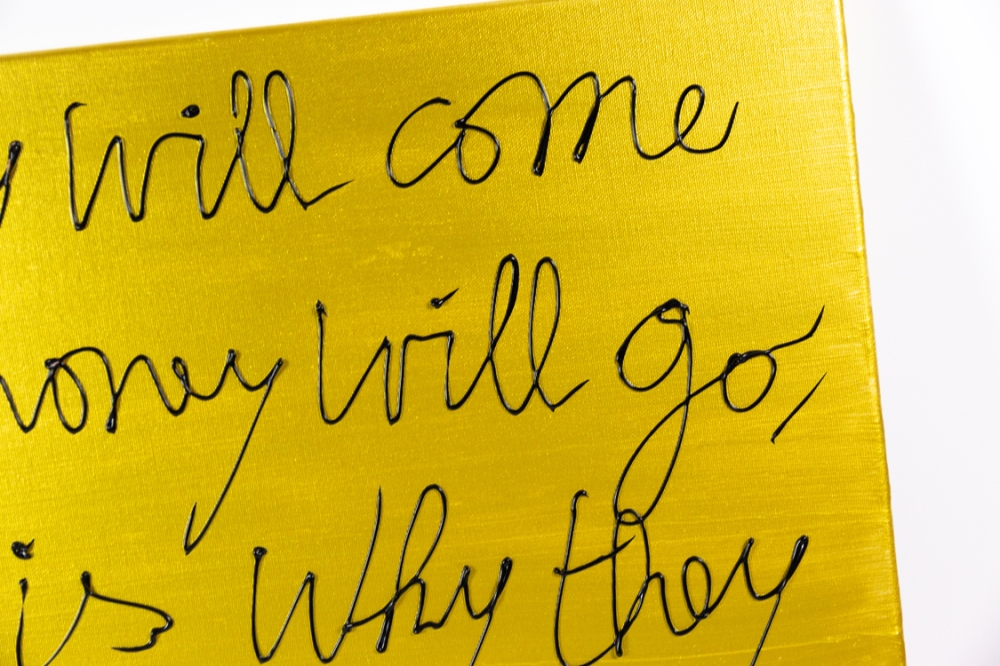 y will come
money will go,
is why they